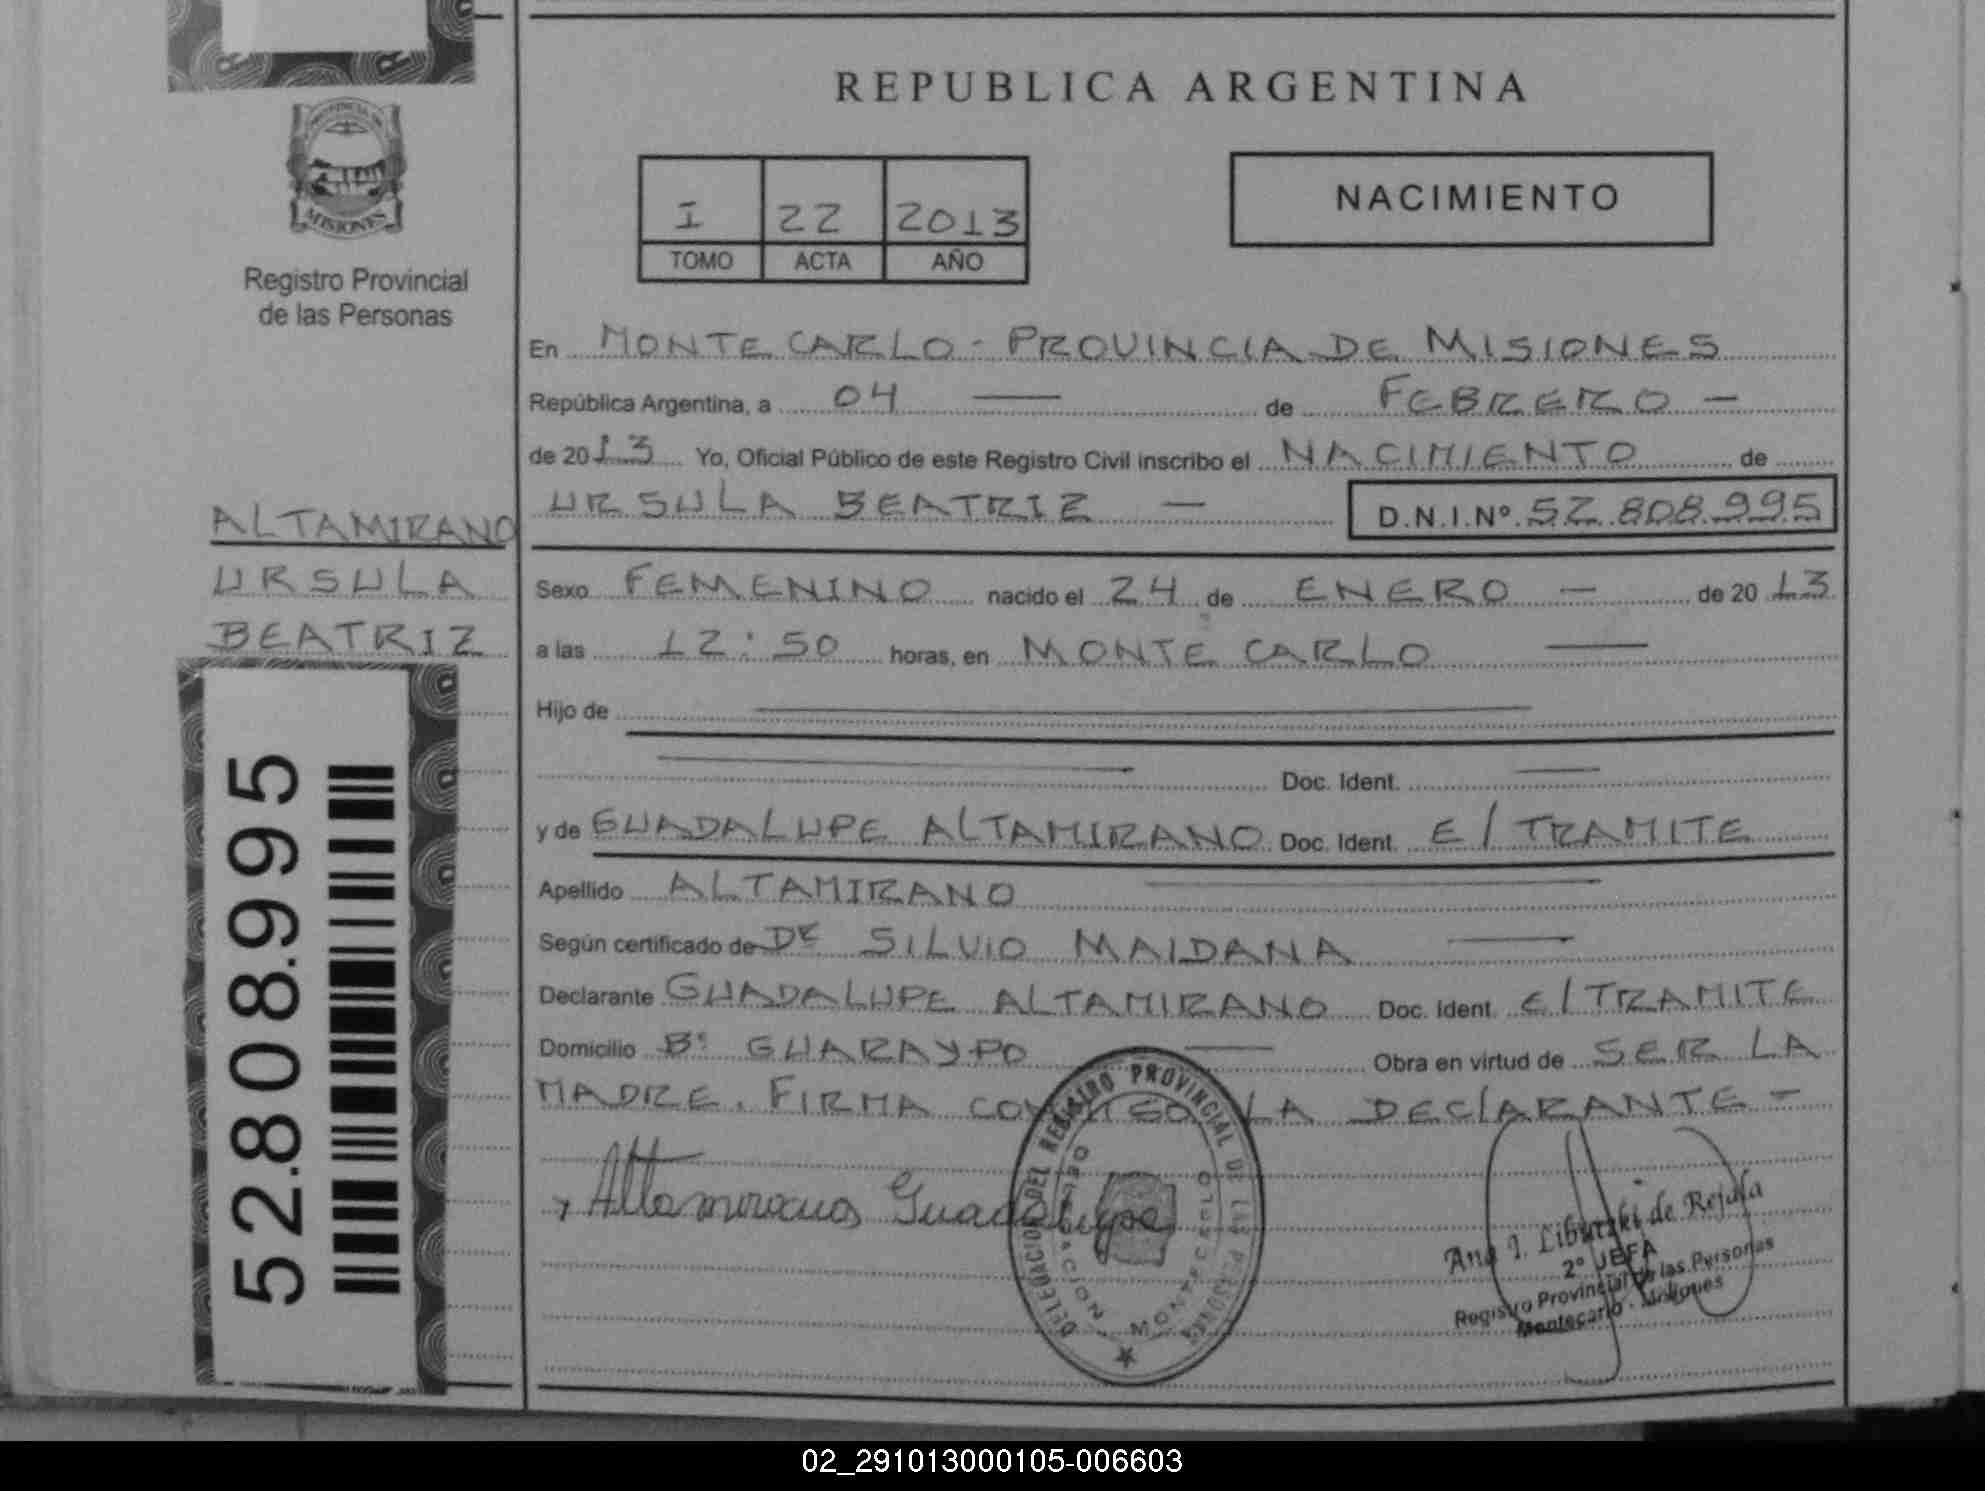 REPUBLICA ARGENTINA
PROVINCIA DE
MISIONES
Registro Provincial
de las Personas
I 22 2013
TOMO ACTA AÑO
NACIMIENTO
En MONTE CARLO - PROVINCIA DE MISIONES
República Argentina, a 04 — de FEBRERO —
de 2013 Yo, Oficial Público de este Registro Civil inscribo el NACIMIENTO de
URSULA BEATRIZ — D.N.I.Nº 52.808.995
ALTAMIRANO
URSULA
BEATRIZ
52.808.995
Sexo FEMENINO nacido el 24 de ENERO — de 2013
a las 12:50 horas, en MONTE CARLO —
Hijo de —
— Doc. Ident. —
y de GUADALUPE ALTAMIRANO Doc. Ident. E/TRAMITE
Apellido ALTAMIRANO —
Según certificado de Dr SILVIO MAIDANA —
Declarante GUADALUPE ALTAMIRANO Doc. Ident. E/TRAMITE
Domicilio Bº GUARAYPO — Obra en virtud de SER LA
MADRE. FIRMA CONMIGO LA DECLARANTE —
Altamirano Guadalupe
DELEGACION DEL REGISTRO PROVINCIAL DE LAS PERSONAS
DELEGACION MONTECARLO
Ana I. Libutzki de Rejala
2º JEFA
Registro Provincial de las Personas
Montecarlo - Misiones
02_291013000105-006603